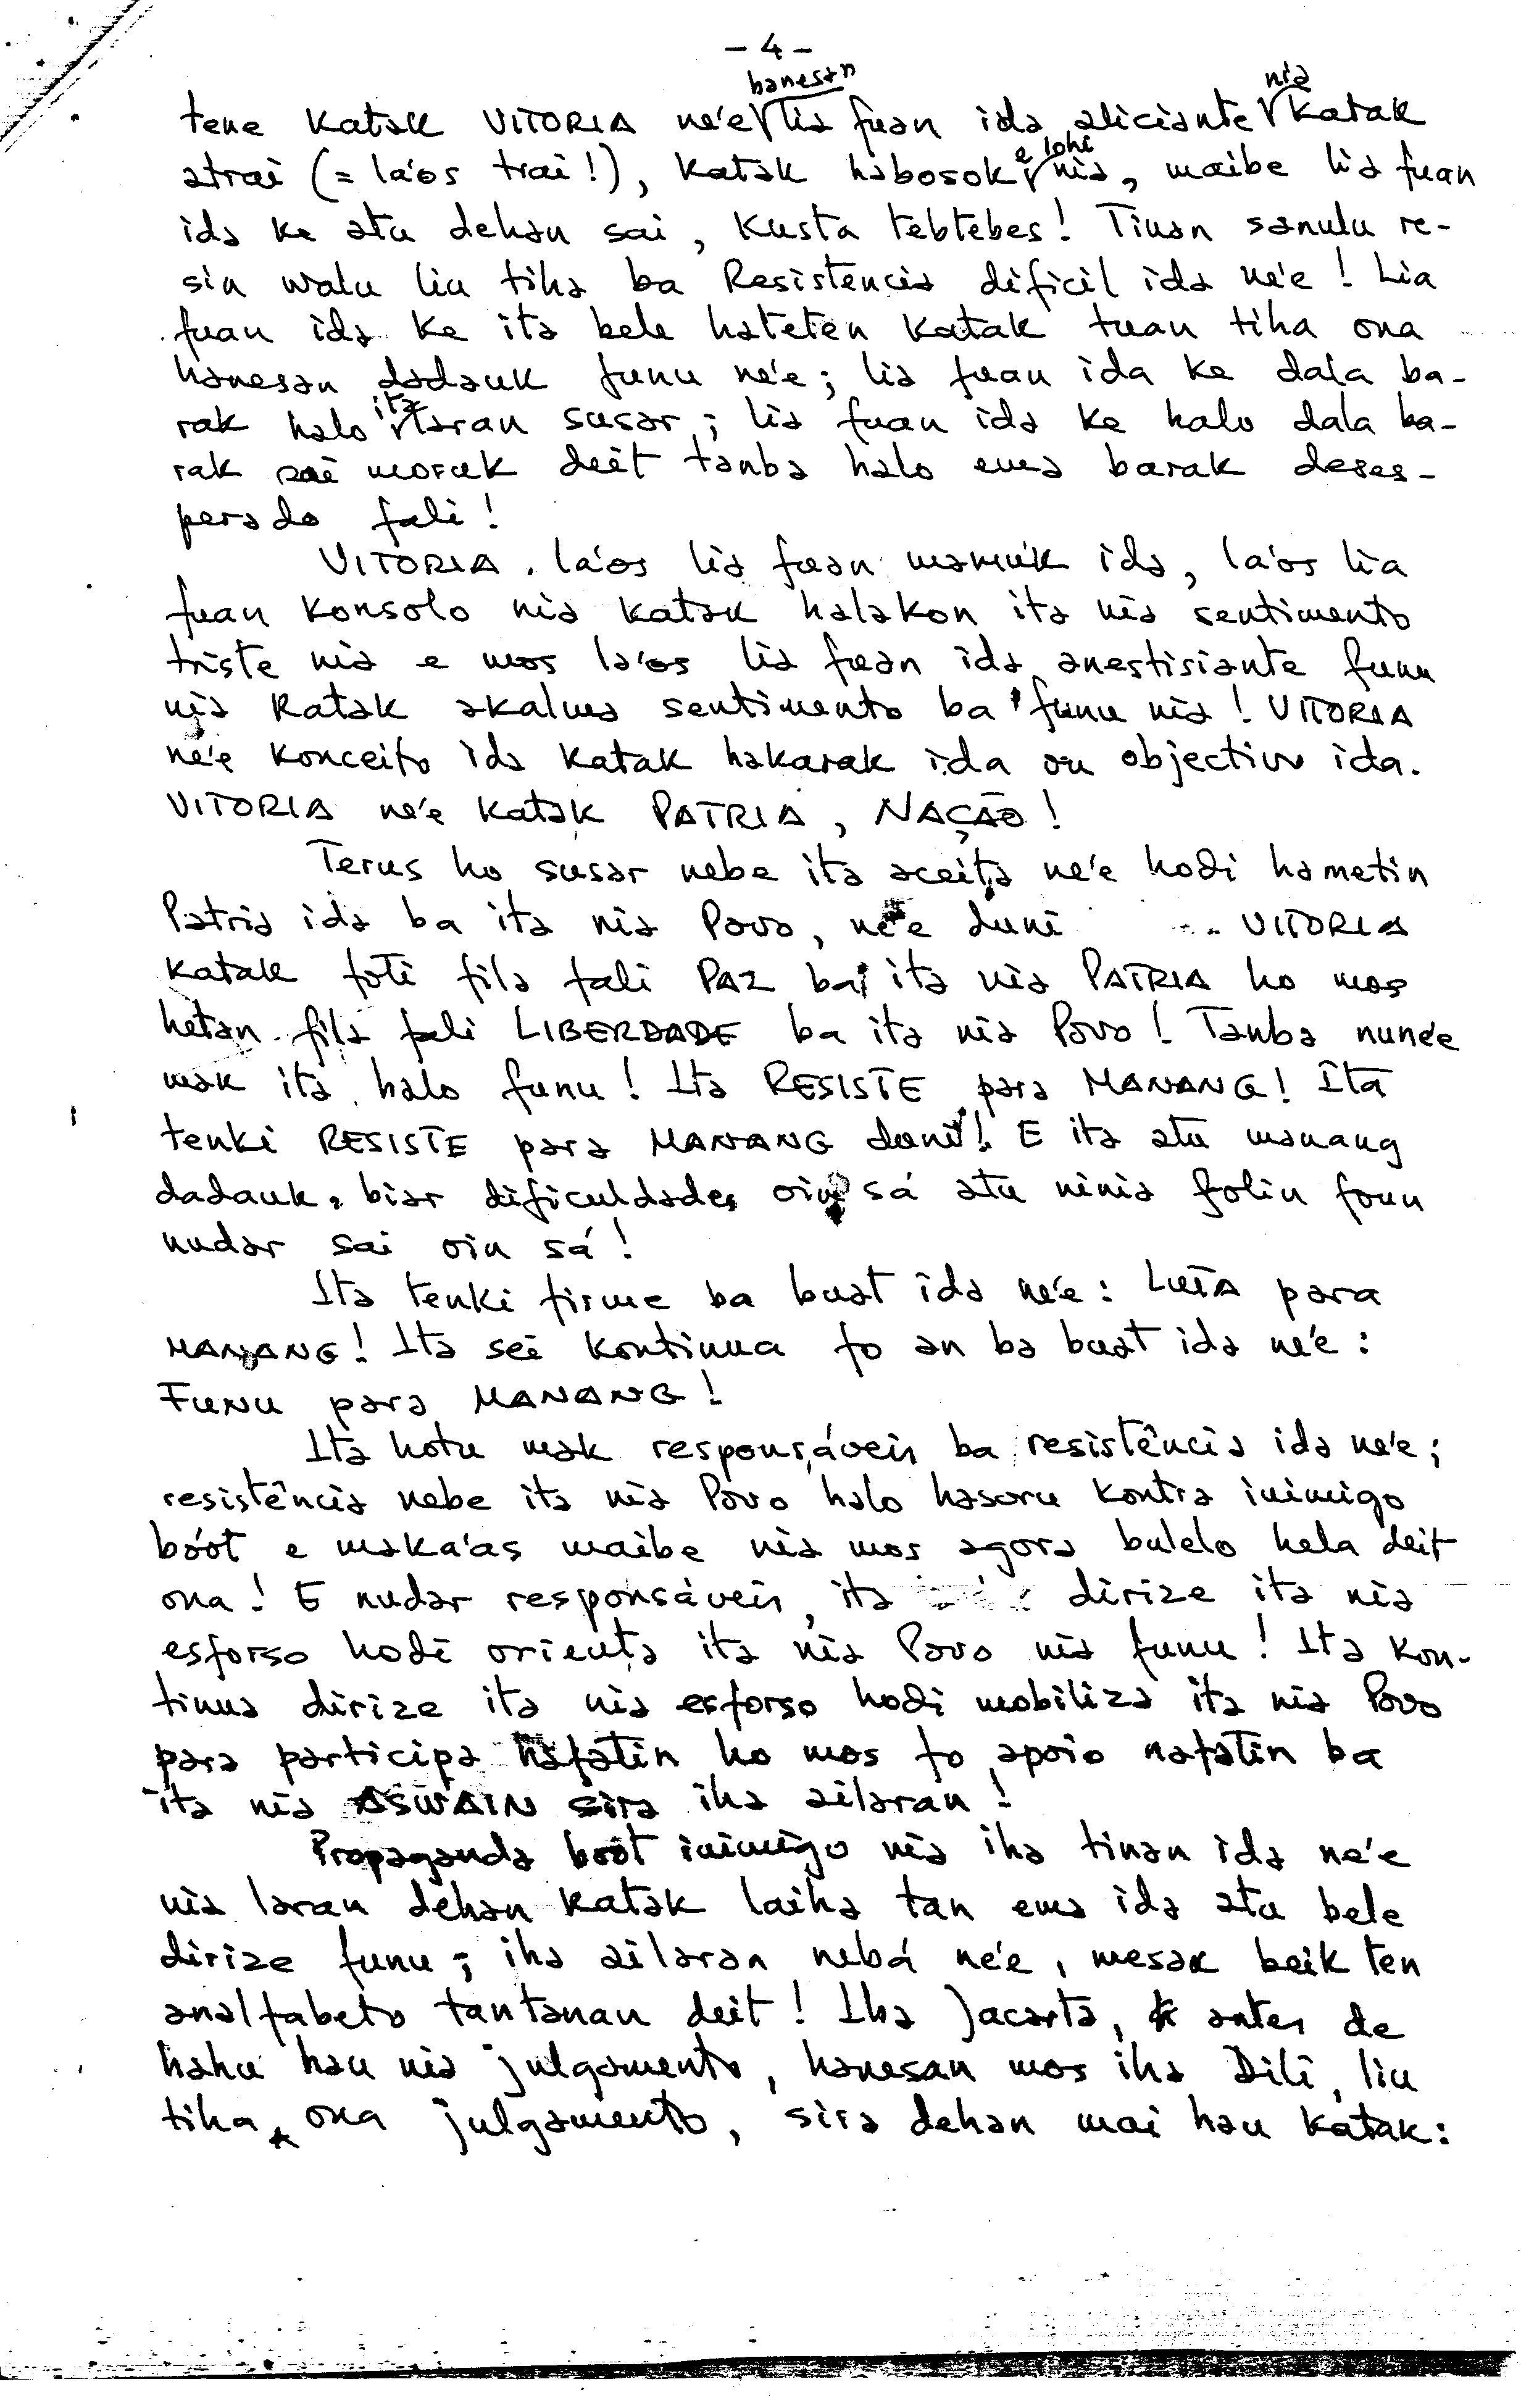 - 4 -
tene katak VITORIA ne'e hanesan lia fuan ida aliciante nia katak
atrai (= la'os trai!), katak habosok e lohi nia, maibe lia fuan
ida ke atu dehan sai, kusta tebtebes! Tinan sanulu re-
sin walu liu tiha ba Resistencia dificil ida ne'e! Lia
fuan ida ke ita bele hateten katak tuan tiha ona
hanesan dadauk funu ne'e; lia fuan ida ke dala ba-
rak halo ita laran susar; lia fuan ida ke halo dala ba-
rak sai moruk deit tanba halo ema barak deses-
perado fali!
VITORIA. la'os lia fuan mamuk ida, la'os lia
fuan konsolo nia katak halakon ita nia sentimento
triste nia e mos la'os lia fuan ida anestisiante funu
nia katak akalma sentimento ba funu nia! VITORIA
ne'e konceito ida katak hakarak ida ou objectivo ida.
VITORIA ne'e katak PATRIA, NAÇÃO!
Terus ho susar nebe ita aceita ne'e hodi hametin
Patria ida ba ita nia Povo, ne'e duni VITORIA
katak foti fila fali PAZ ba ita nia PATRIA ho mos
hetan fila fali LIBERDADE ba ita nia Povo! Tanba nune'e
mak ita halo funu! Ita RESISTE para MANANG! Ita
tenki RESISTE para MANANG duni! E ita atu manang
dadauk, biar dificuldades oin sá atu ninia folin foun
nudar sai oin sá!
Ita tenki firme ba buat ida ne'e: LUTA para
MANANG! Ita sei kontinua fo an ba buat ida ne'e:
FUNU para MANANG!
Ita hotu mak responsáveis ba resistência ida ne'e;
resistência nebe ita nia Povo halo hasoru kontra inimigo
bóot e maka'as maibe nia mos agora bulelo hela deit
ona! E nudar responsáveis, ita dirize ita nia
esforso hodi orienta ita nia Povo nia funu! Ita kon-
tinua dirize ita nia esforso hodi mobiliza ita nia Povo
para participa nafatin ho mos fo apoio nafatin ba
ita nia ASWAIN sira iha ailaran!
Propaganda boot inimigo nia iha tinan ida ne'e
nia laran dehan katak laiha tan ema ida atu bele
dirize funu; iha ailaran nebá ne'e, mesak beik ten
analfabeto tantanan deit! Iha Jacarta, antes de
hahu hau nia julgamento, hanesan mos iha Dili, liu
tiha ona julgamento, sira dehan mai hau katak: